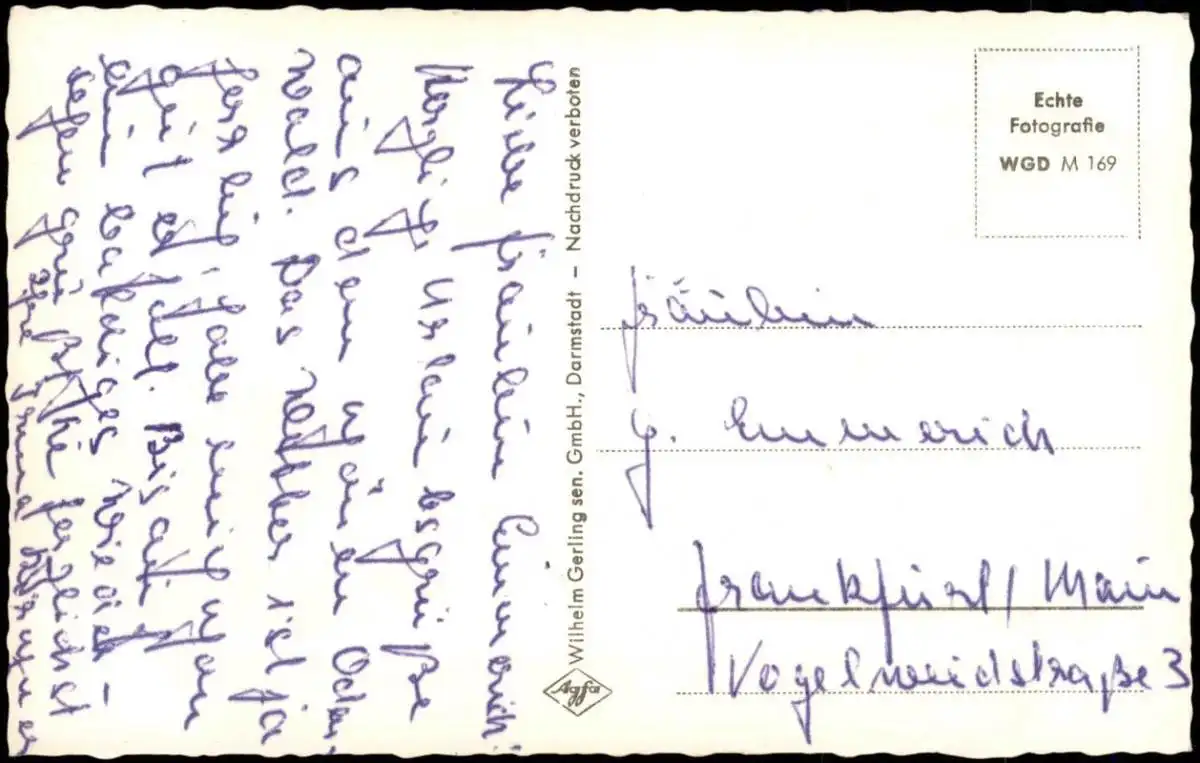 Liebe Fräulein Emmerich!
Herzliche Urlaubsgrüße
aus dem schönen Oden-
wald. Das Wetter ist ja
herrlich, habe mich schon
gut erholt. Bis auf
ein baldiges Wieder-
sehen grüßt Sie herzlichst
Ihre
Wilhelm Gerling sen. GmbH., Darmstadt – Nachdruck verboten
Agfa
Echte
Fotografie
WGD M 169
Fräulein
G. Emmerich
Frankfurt/Main
Vogelweidstraße 3